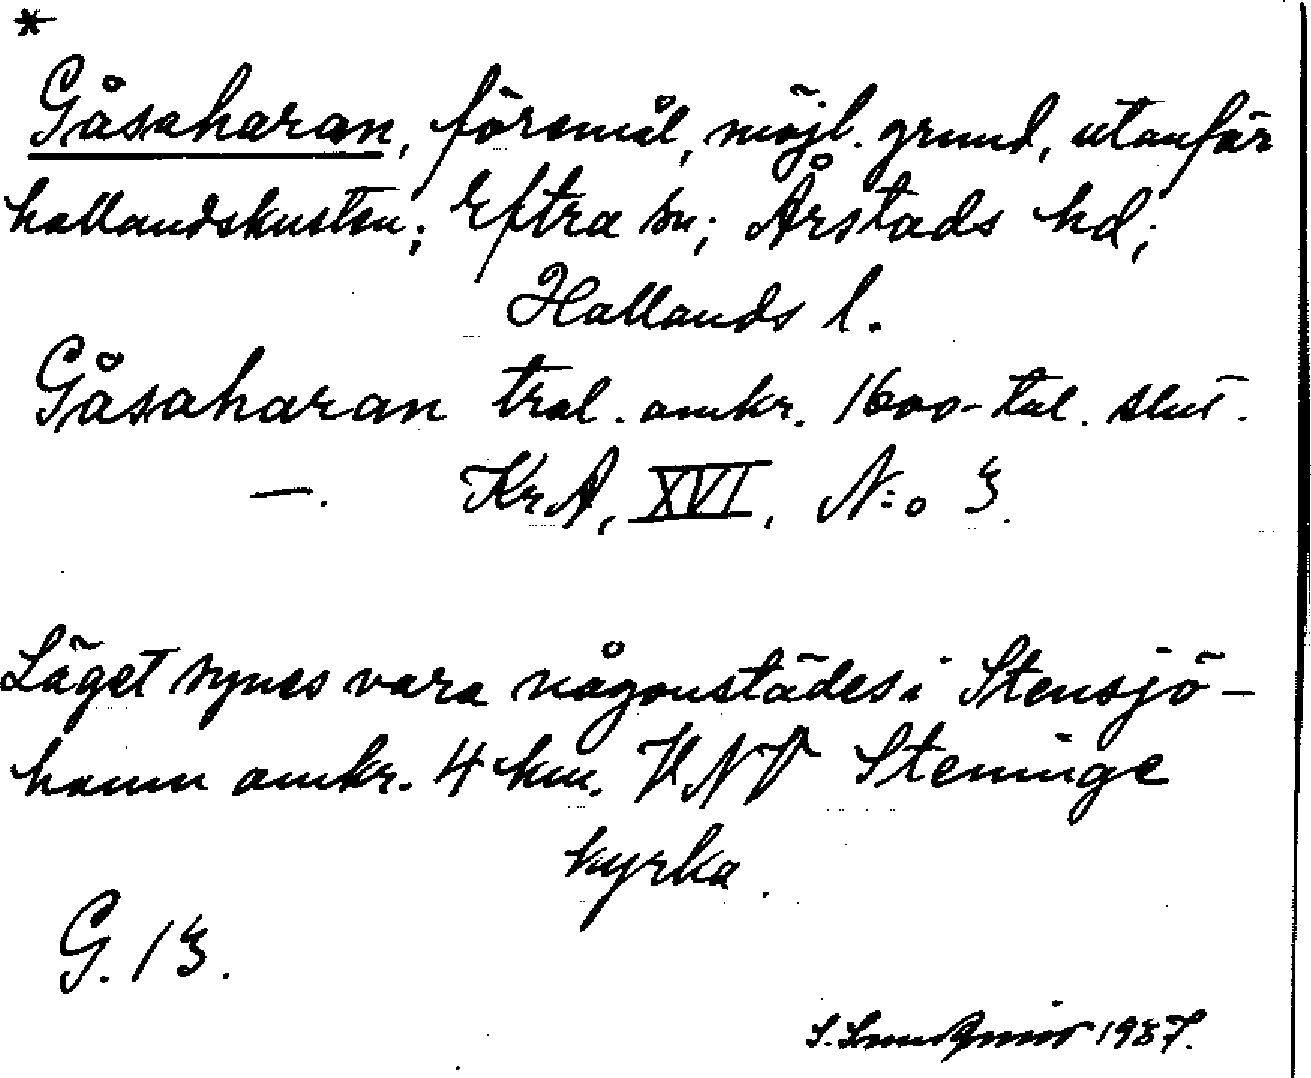 *
Gåsaharan, föremål, möjl. grund, utanför
hallandskusten; Eftra sn; Årstads hd;
Hallands l.
Gåsaharan tral. omkr. 1600-tal. slut.
—. KrA, XVI, N:o 3.
Läget synes vara någonstädes i Stensjö-
hamn omkr. 4 km. VNV Steninge
kyrka.
G. 13.
S. 1937.